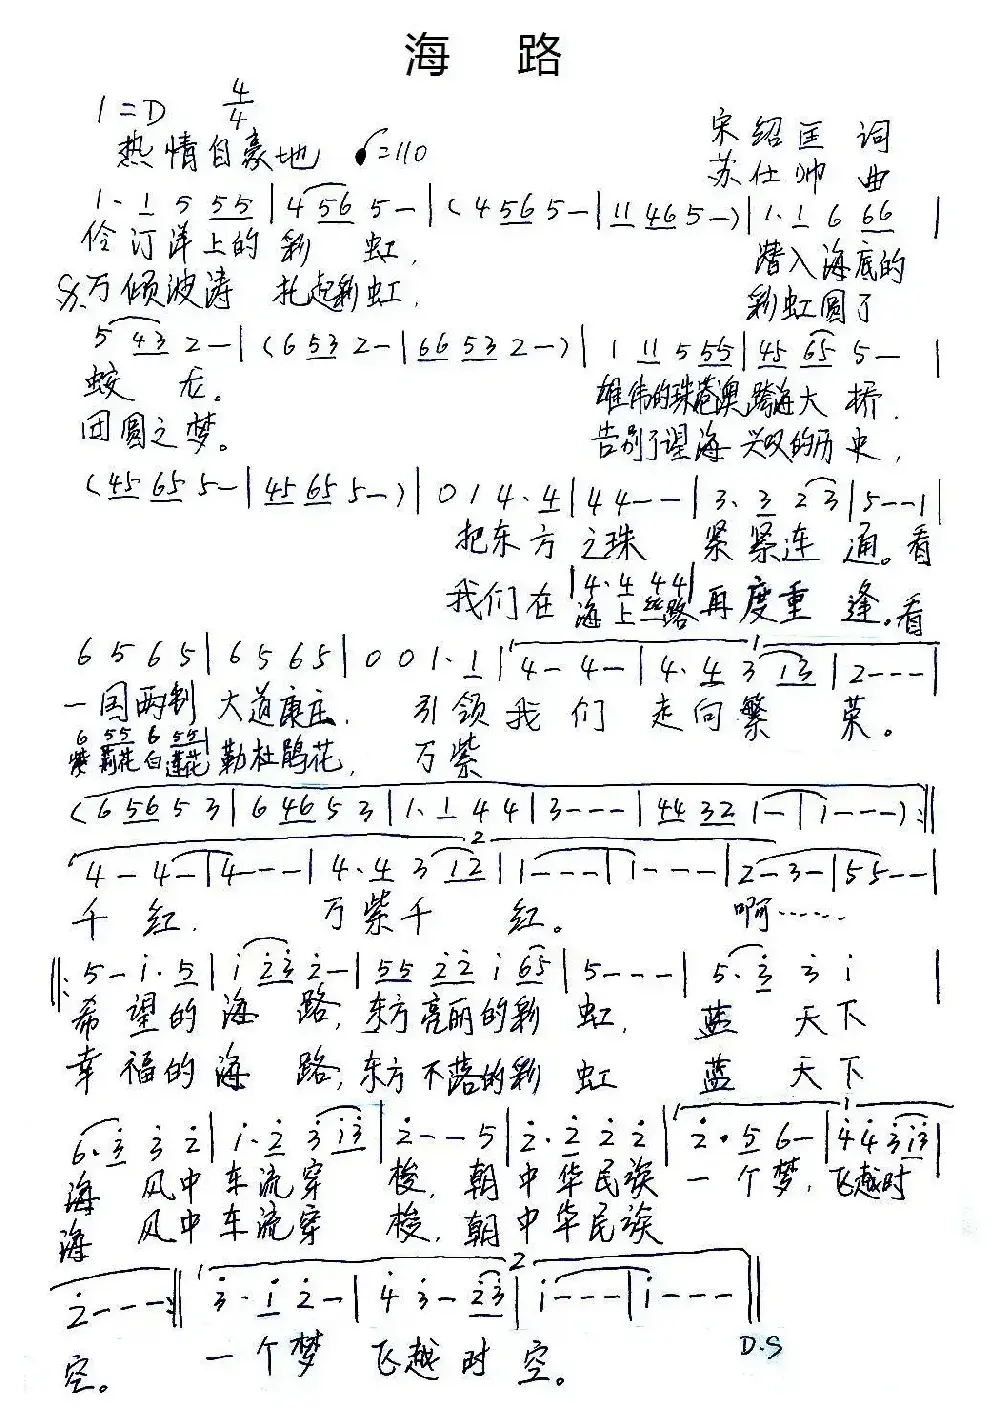 海 路
1=D 4/4
热情自豪地 ♪=110
宋绍匡 词
苏仕帅 曲
1· 1 5 55 | 4 56 5 - | (4 56 5 - | 11 46 5 -) | 1· 1 6 66 |
伶仃洋上的彩 虹, 潜入海底的
万倾波涛 托起彩虹, 彩虹圆了
5 43 2 - | (6 53 2 - | 66 53 2 -) | 1 11 5 55 | 45 65 5 - |
蛟 龙。 雄伟的珠港澳跨海大 桥,
团圆之梦。 告别了望海兴叹的历史,
(45 65 5 - | 45 65 5 -) | 0 1 4· 4 | 4 4 - - | 3· 3 2 3 | 5 - - 1 |
把东方之珠 紧紧连 通。看
|4· 4 4 4|
我们在海上丝路再度重 逢。看
6 5 6 5 | 6 5 6 5 | 0 0 1· 1 | 4 - 4 - | 4· 4 3 13 | 2 - - - |
一国两制 大道康庄, 引领我们 走向繁 荣。
6 55 6 55|
紫荆花白莲花 勒杜鹃花, 万紫
(6 56 5 3 | 6 46 5 3 | 1· 1 4 4 | 3 - - - | 44 32 1 - | 1 - - -) :||
2
4 - 4 - | 4 - - - | 4· 4 3 12 | 1 - - - | 1 - - - | 2 - 3 - | 5 5 - - |
千 红, 万紫千 红。 啊……
||: 5 - i· 5 | i 23 2 - | 55 22 i 65 | 5 - - - | 5· 3 3 i |
希望的海 路, 东方亮丽的彩 虹, 蓝 天下
幸福的海 路, 东方不落的彩 虹 蓝 天下
1
6· 3 3 2 | i· 2 3 13 | 2 - - 5 | 2· 2 2 2 | 2· 5 6 - | 4 4 3 13 |
海 风中车流穿 梭, 朝中华民族 一个梦, 飞越时
海 风中车流穿 梭, 朝中华民族
2
2 - - - :|| 3· i 2 - | 4 3 - 23 | i - - - | i - - - ||
空。 一个梦 飞越时空。
D.S